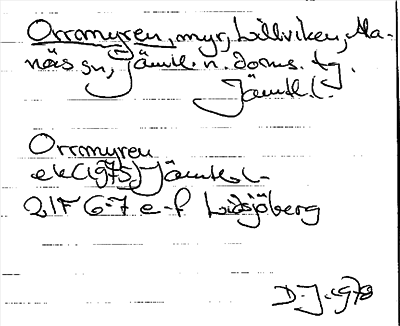 Orrmyren, myr, Lillviken, Ala-
näs sn, Jämtl. n. doms. tg.
Jämtl. l.
Orrmyren
ek (1975) Jämtl. l.
21F 6-7 e-f Lidsjöberg
D. J. 1978